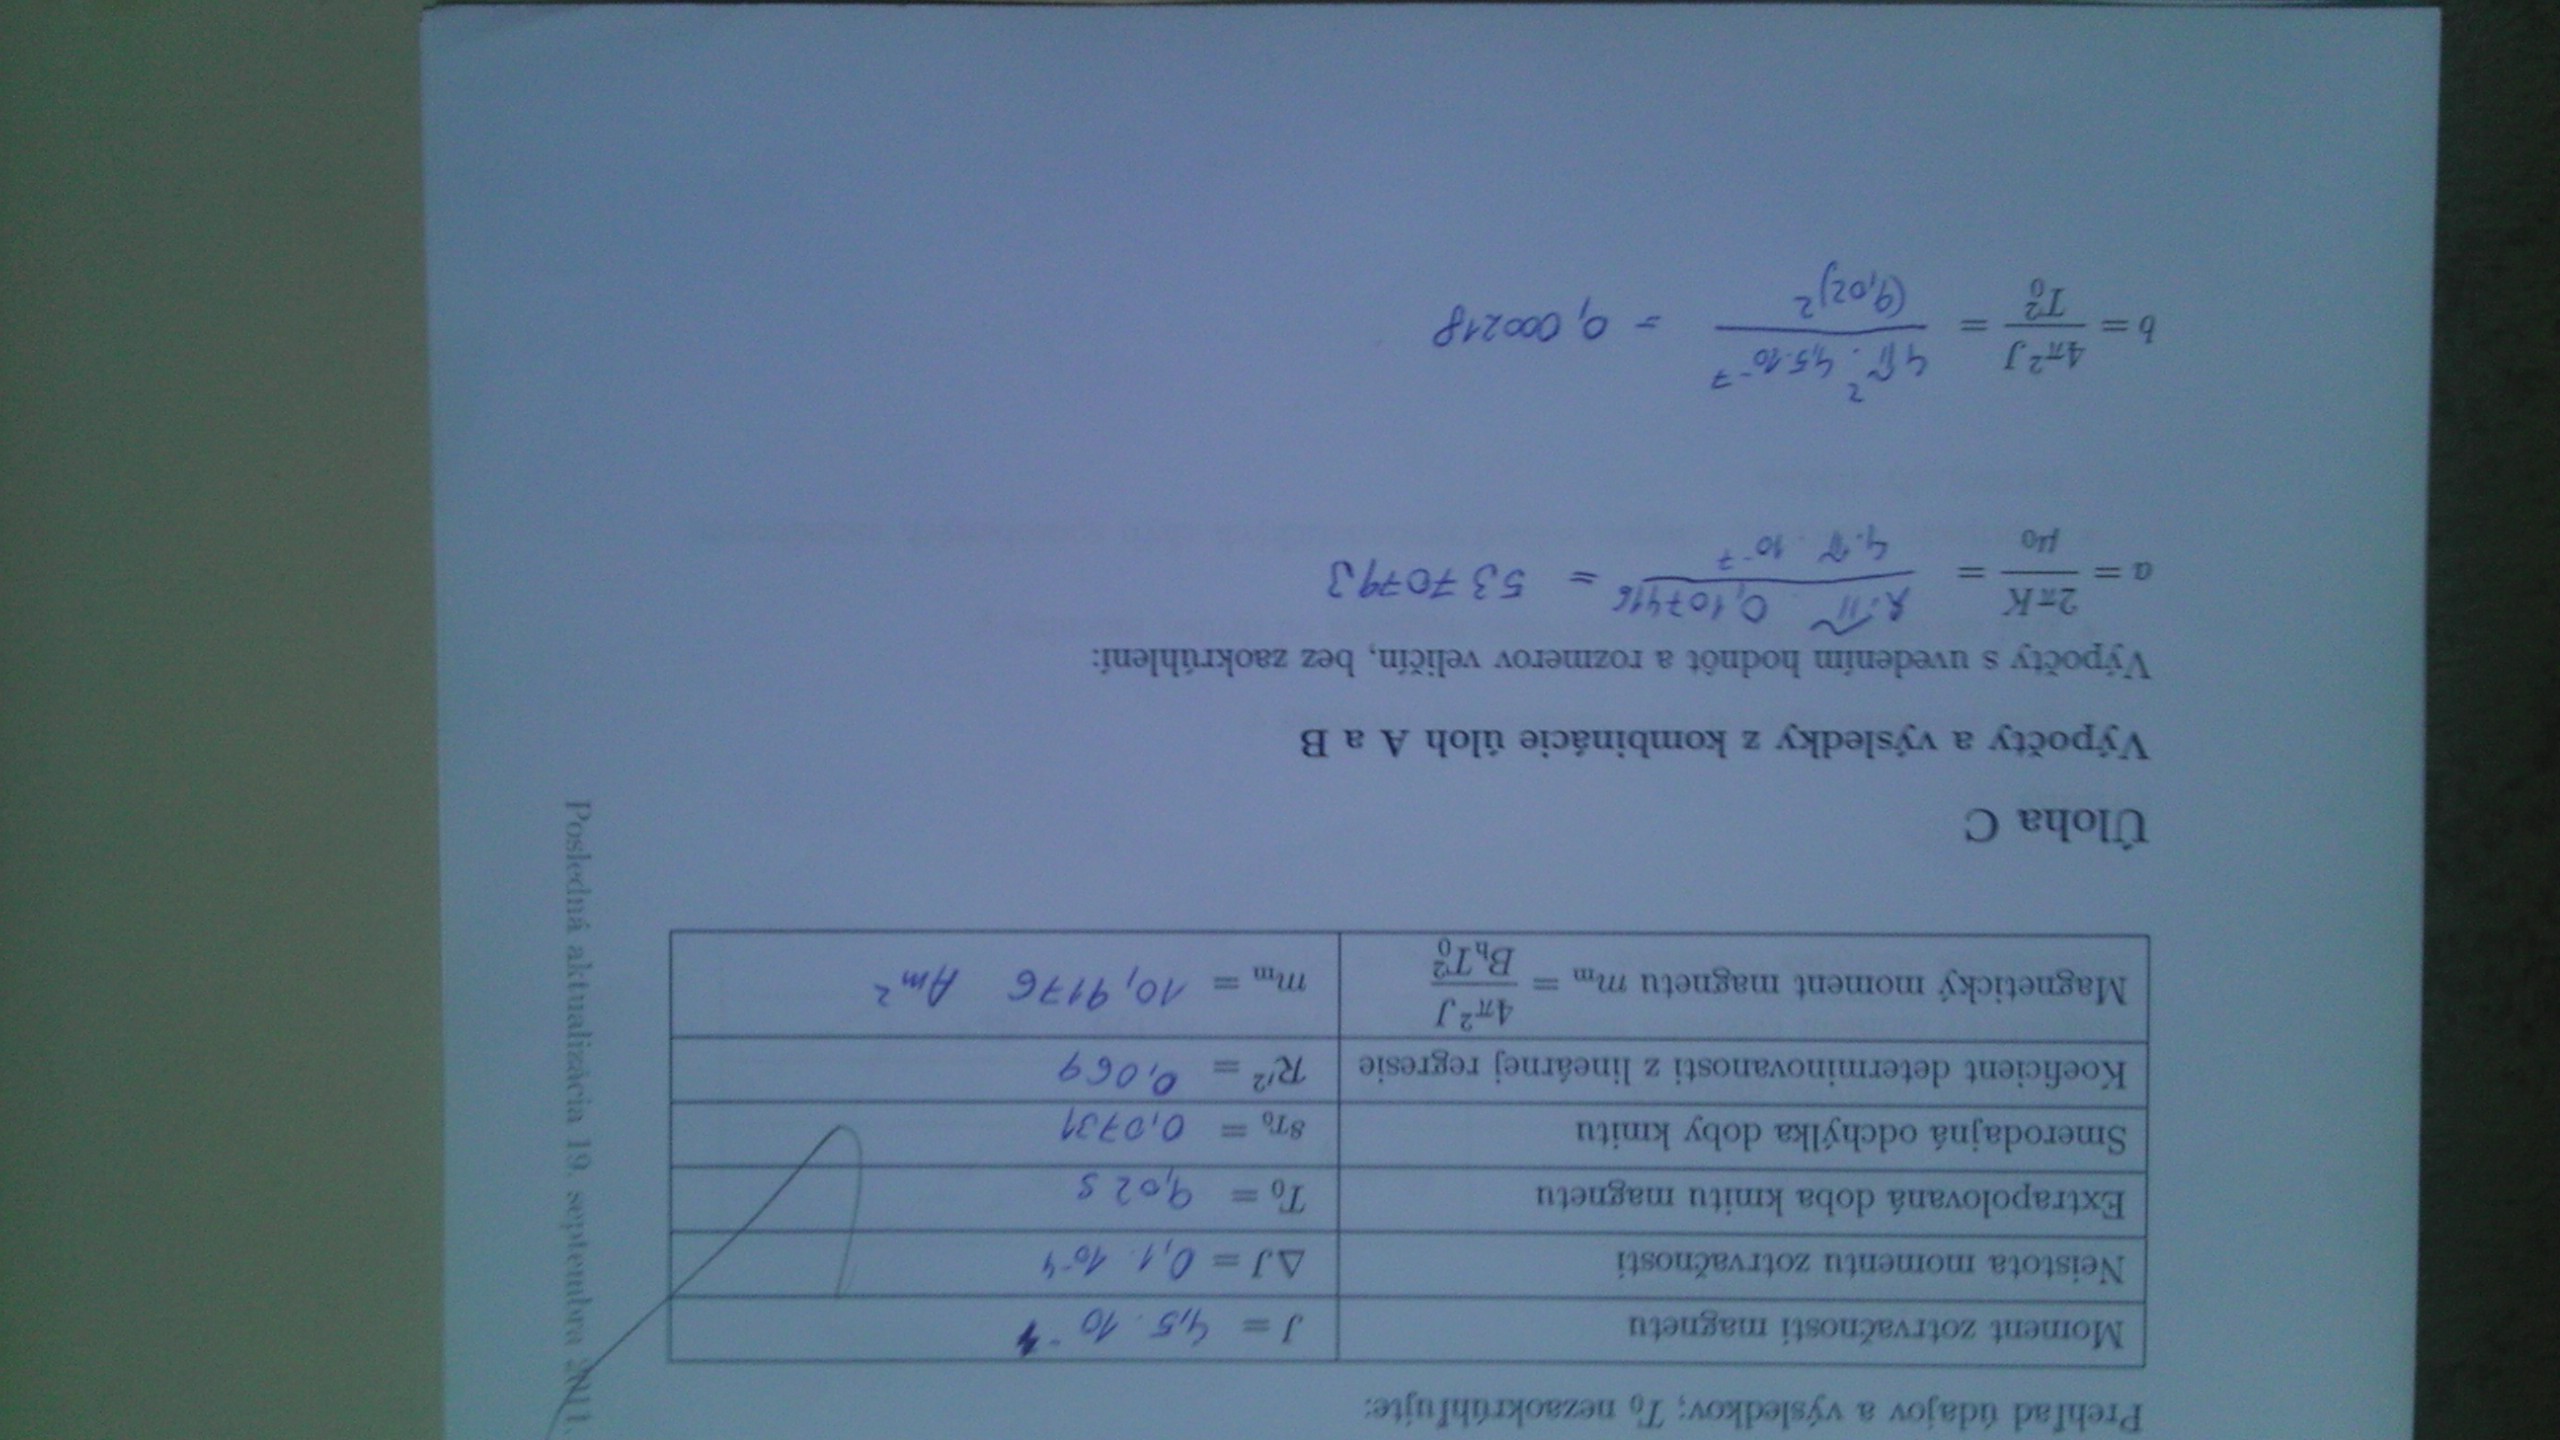 Prehľad údajov a výsledkov; T₀ nezaokrúhľujte:
Moment zotrvačnosti magnetu J = 4,5 . 10⁻⁴
Neistota momentu zotrvačnosti ΔJ = 0,1 . 10⁻⁴
Extrapolovaná doba kmitu magnetu T₀ = 9,02 s
Smerodajná odchýlka doby kmitu s_T₀ = 0,0731
Koeficient determinovanosti z lineárnej regresie R'² = 0,069
Magnetický moment magnetu m_m = 4π²J / B_h T₀² m_m = 10,9176 Am²
Úloha C
Výpočty a výsledky z kombinácie úloh A a B
Výpočty s uvedením hodnôt a rozmerov veličín, bez zaokrúhlení:
a = 2πK / μ₀ = 2.π 0,107416 / 4.π 10⁻⁷ = 5370793
b = 4π²J / T₀² = 4π² . 4,5.10⁻⁷ / (9,02)² = 0,000218
Posledná aktualizácia 19. septembra 2011.